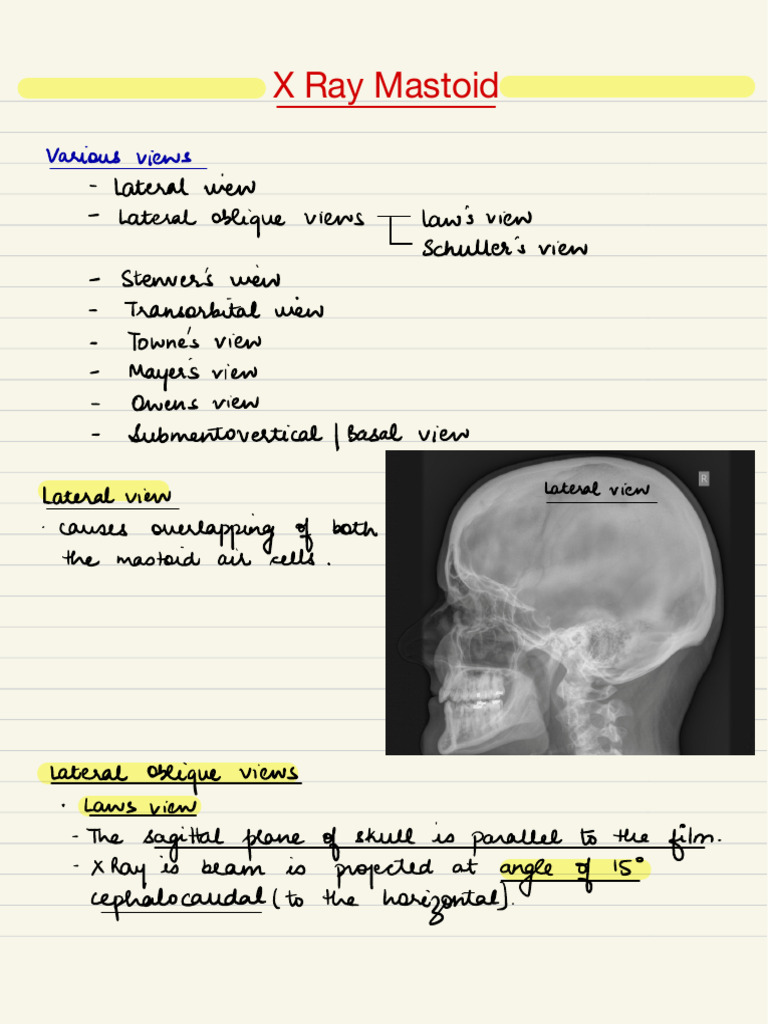 X Ray Mastoid
Various views
- Lateral view
- Lateral oblique views
Law's view
Schuller's view
- Stenver's view
- Transorbital view
- Towne's view
- Mayer's view
- Owens view
- Submentovertical | Basal view
Lateral view
· causes overlapping of both
the mastoid air cells.
Lateral view
R
Lateral oblique views
· Laws view
- The sagittal plane of skull is parallel to the film.
- X Ray is beam is projected at angle of 15°
cephalocaudal (to the horizontal).